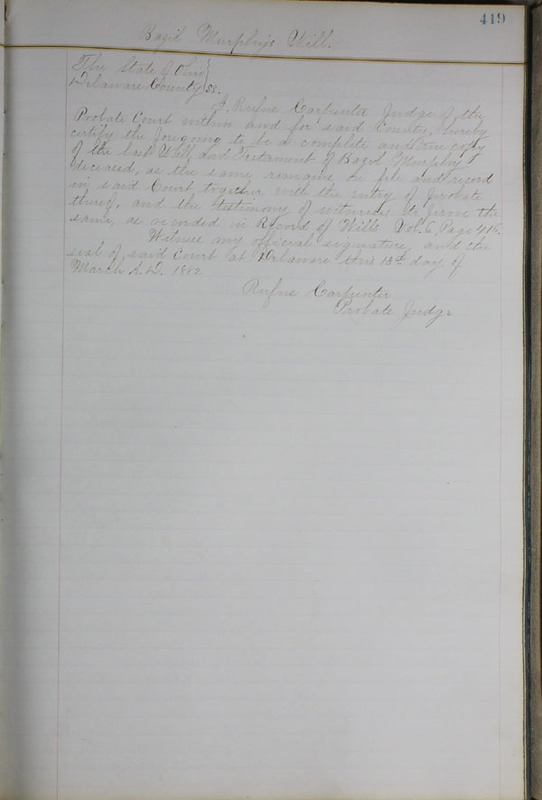 419
Bazil Murphy's Will.
The State of Ohio }
Delaware County } ss.
I, Rufus Carpenter Judge of the
Probate Court within and for said County, hereby
certify the foregoing to be a complete and true copy
of the last Will and Testament of Bazil Murphy
deceased, as the same remains on file and record
in said Court, together with the entry of probate
thereof, and the testimony of witnesses to prove the
same, as recorded in Record of Wills Vol. 6, Page 416.
Witness my official signature and the
seal of said Court at Delaware this 13th day of
March A.D. 1882
Rufus Carpenter
Probate Judge